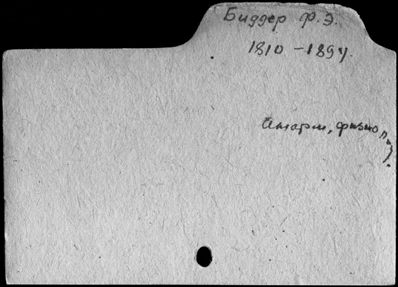 Биддер Ф.Э.
1810-1894.
Анатом, физиол.